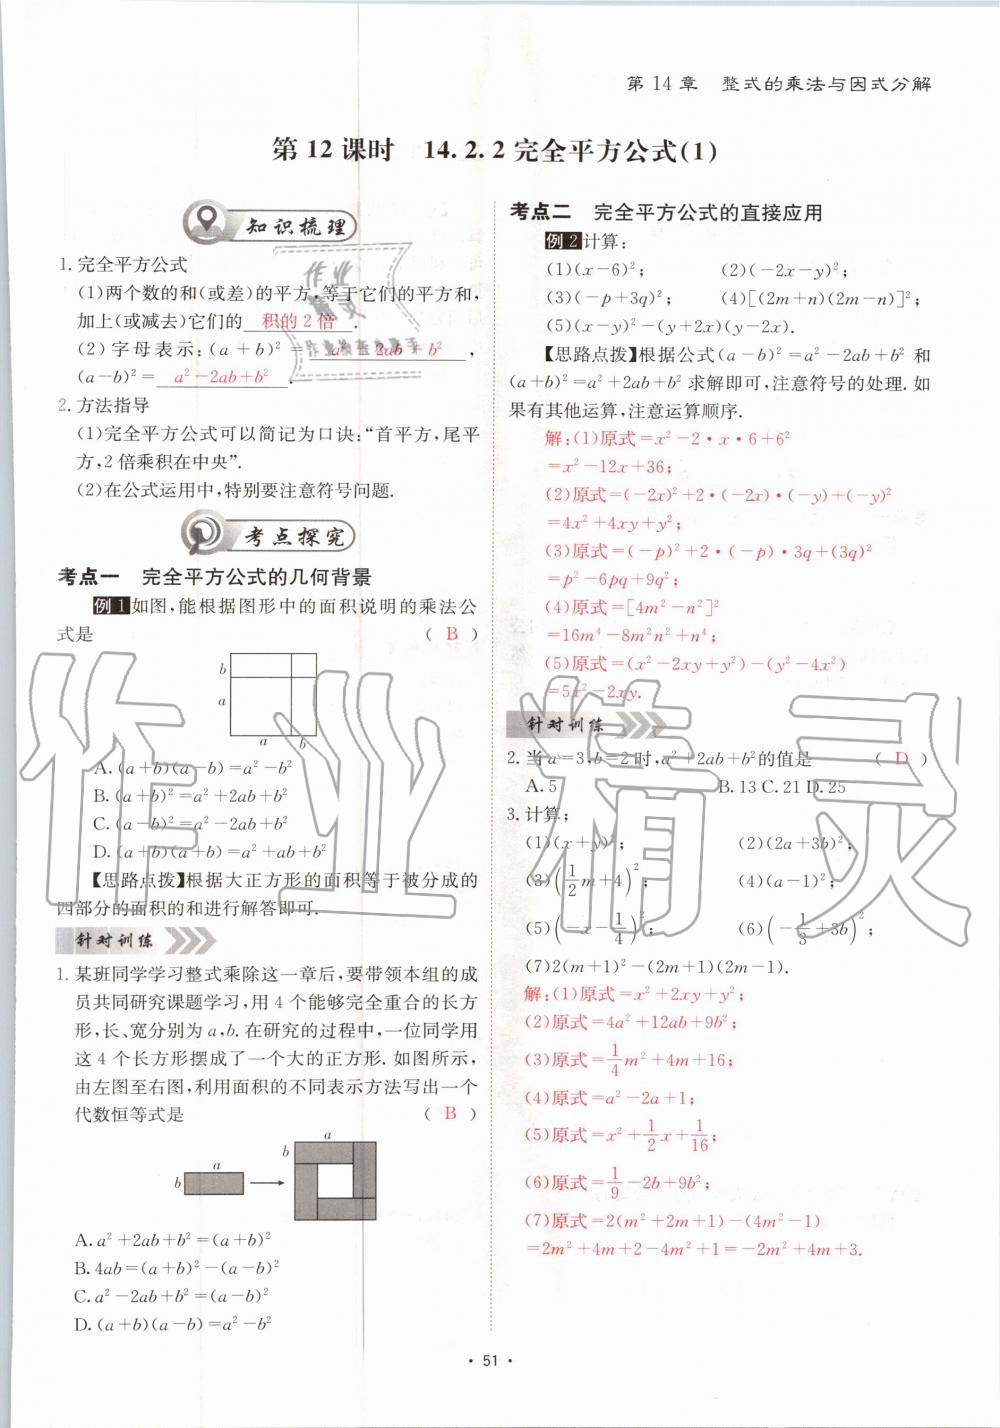 第14章 整式的乘法与因式分解
第12课时 14.2.2完全平方公式(1)
知识梳理
1.完全平方公式
(1)两个数的和(或差)的平方,等于它们的平方和,
加上(或减去)它们的 积的2倍 .
(2)字母表示:(a+b)²= a²+2ab+b² ,
(a-b)²= a²-2ab+b² .
2.方法指导
(1)完全平方公式可以简记为口诀:“首平方,尾平
方,2倍乘积在中央”.
(2)在公式运用中,特别要注意符号问题.
考点探究
考点一 完全平方公式的几何背景
例1 如图,能根据图形中的面积说明的乘法公
式是 ( B )
b
a
a b
A.(a+b)(a-b)=a²-b²
B.(a+b)²=a²+2ab+b²
C.(a-b)²=a²-2ab+b²
D.(a+b)(a+b)=a²+ab+b²
【思路点拨】根据大正方形的面积等于被分成的
四部分的面积的和进行解答即可.
针对训练
1.某班同学学习整式乘除这一章后,要带领本组的成
员共同研究课题学习,用4个能够完全重合的长方
形,长、宽分别为a,b.在研究的过程中,一位同学用
这4个长方形摆成了一个大的正方形.如图所示,
由左图至右图,利用面积的不同表示方法写出一个
代数恒等式是 ( B )
a
b
a
b
A.a²+2ab+b²=(a+b)²
B.4ab=(a+b)²-(a-b)²
C.a²-2ab+b²=(a-b)²
D.(a+b)(a-b)=a²-b²
考点二 完全平方公式的直接应用
例2 计算:
(1)(x-6)²; (2)(-2x-y)²;
(3)(-p+3q)²; (4)[(2m+n)(2m-n)]²;
(5)(x-y)²-(y+2x)(y-2x).
【思路点拨】根据公式(a-b)²=a²-2ab+b²和
(a+b)²=a²+2ab+b²求解即可,注意符号的处理.如
果有其他运算,注意运算顺序.
解:(1)原式=x²-2·x·6+6²
=x²-12x+36;
(2)原式=(-2x)²+2·(-2x)·(-y)+(-y)²
=4x²+4xy+y²;
(3)原式=(-p)²+2·(-p)·3q+(3q)²
=p²-6pq+9q²;
(4)原式=[4m²-n²]²
=16m⁴-8m²n²+n⁴;
(5)原式=(x²-2xy+y²)-(y²-4x²)
=5x²-2xy.
针对训练
2.当a=3,b=2时,a²+2ab+b²的值是 ( D )
A.5 B.13 C.21 D.25
3.计算:
(1)(x+y)²; (2)(2a+3b)²;
(3)(1/2m+4)²; (4)(a-1)²;
(5)(-x-1/4)²; (6)(-1/3+3b)²;
(7)2(m+1)²-(2m+1)(2m-1).
解:(1)原式=x²+2xy+y²;
(2)原式=4a²+12ab+9b²;
(3)原式=1/4m²+4m+16;
(4)原式=a²-2a+1;
(5)原式=x²+1/2x+1/16;
(6)原式=1/9-2b+9b²;
(7)原式=2(m²+2m+1)-(4m²-1)
=2m²+4m+2-4m²+1=-2m²+4m+3.
·51·
作业精灵